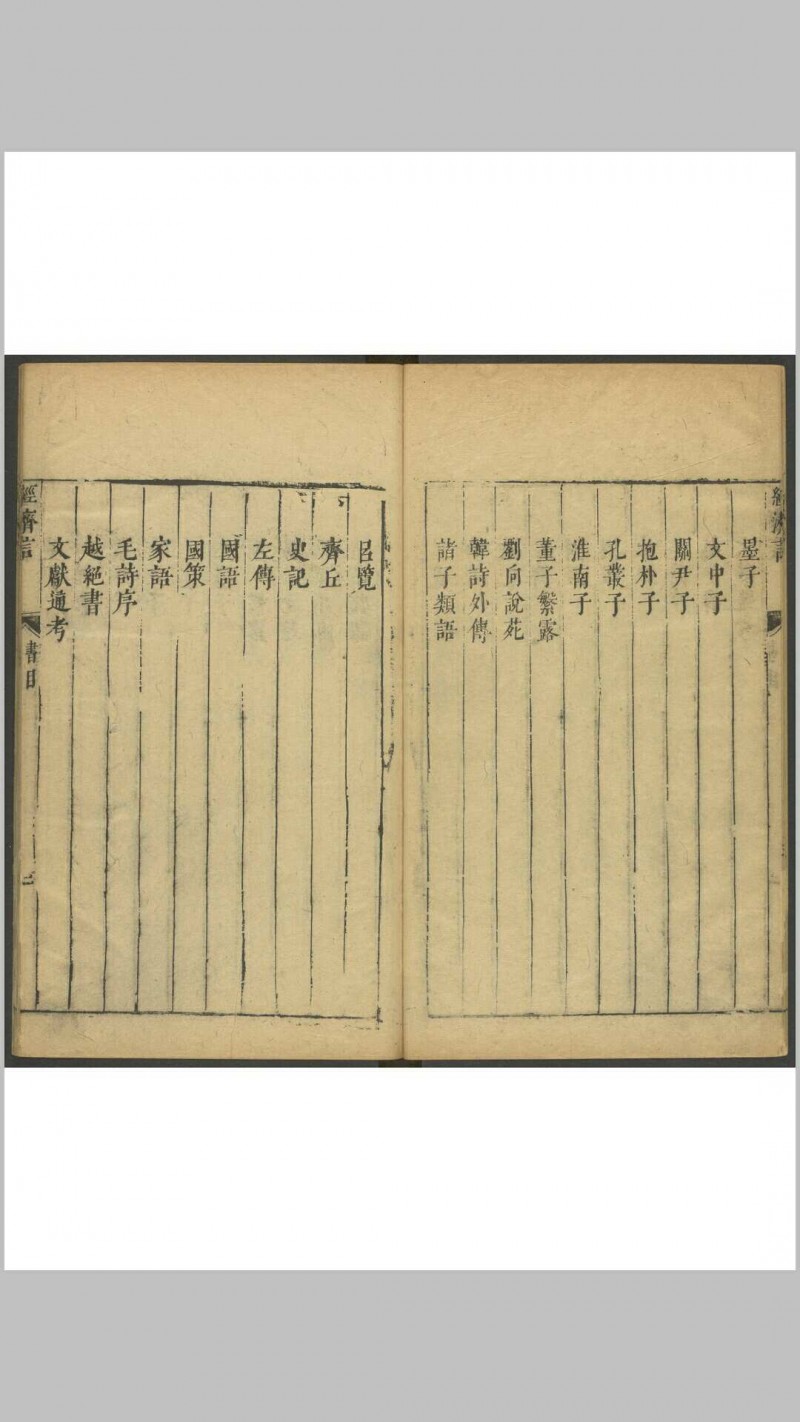 墨子
文中子
關尹子
抱朴子
孔叢子
淮南子
董子繁露
劉向說苑
韓詩外傳
諸子類語
呂覽
齊丘
史記
左傳
國語
國策
家語
毛詩序
越絕書
文獻通考
經濟言 書目 二